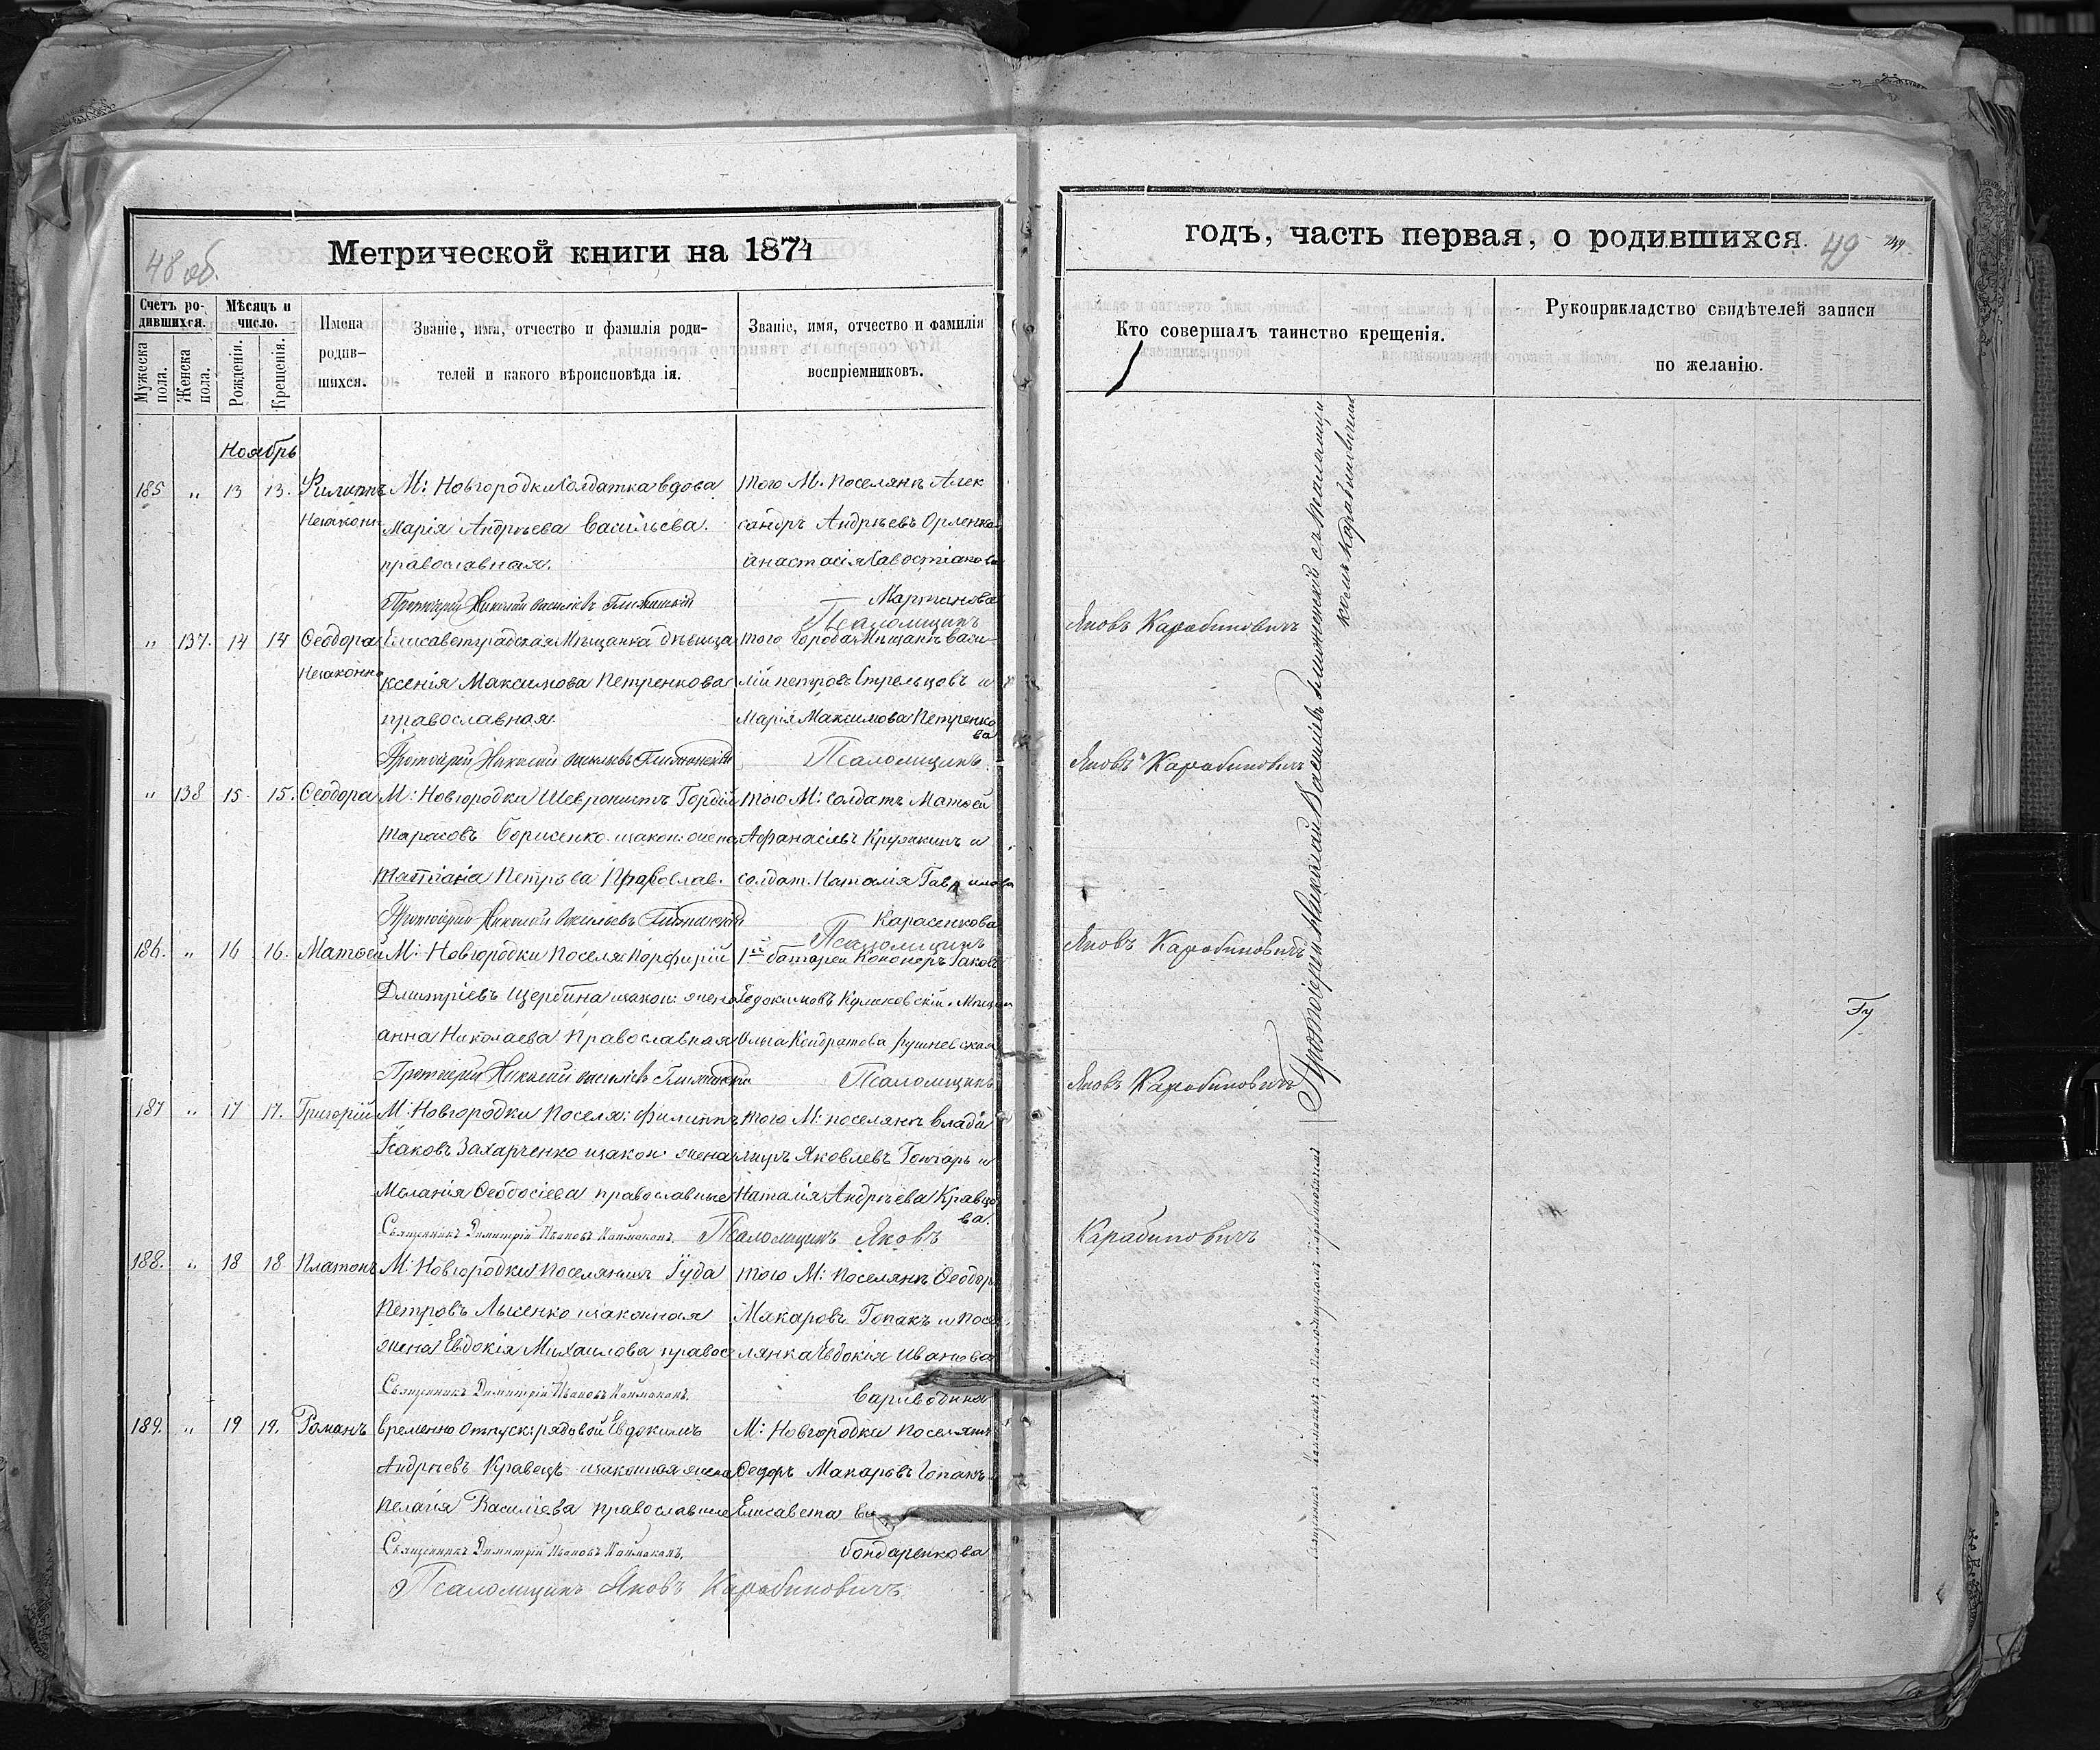 48 об.
Метрической книги на 1874
Счетъ ро-
дившихся.
Мѣсяцъ и
число.
Мужеска
пола.
Женска
пола.
Рожденія.
Крещенія.
Имена
родив-
шихся.
Званіе, имя, отчество и фамилія роди-
телей и какого вѣроисповѣда ія.
Званіе, имя, отчество и фамилія
воспріемниковъ.
Ноябрь
185 " 13 13. Филиппъ М: Новгородки Солдатка вдова того М. поселянъ Алек
Незаконн Марія Андрѣева Васильева. сандръ Андрѣевъ Орленко
православная. Анастасія
Протоіерей Николай Васильевъ Мартинова
Псаломщикъ
" 137. 14 14 Ѳеодора Елисаветградская Мѣщанка дѣвица того города Мѣщанъ Васи-
Незаконно Ксенія Максимова Петренкова лій Петровъ Стрельцовъ и
православная. Марія Максимова Петренко
ва
Протоіерей Николай Васильевъ Псаломщикъ
" 138 15 15. Ѳеодора М: Новгородки Шевронистъ Гордій того М: Солдатъ Матѳей
Тарасовъ Борисенко закон: жена Афанасіевъ и
Татіана Петрова Православ. солдат. Наталія Гаврилова
Протоіерей Николай Васильевъ Карасенкова
Псаломщикъ
186. " 16 16. Матѳей М: Новгородки Поселя: Порфирій 1й батареи Іаковъ
Дмитріевъ Щербина закон: жена Евдокимовъ
Анна Николаева Православная Ольга Кондратова
Протоіерей Николай Васильевъ Псаломщикъ
187 " 17 17. Григорій М: Новгородки Поселя: Филиппъ того М: поселянъ Влади
Исаковъ Захарченко закон: жена миръ Яковлевъ Гончаръ и
Меланія Ѳеодосіева православные Наталія Андрѣева Кравцо
ва.
Священникъ Димитрій Ивановъ Каймаканъ. Псаломщикъ Яковъ
188. " 18 18 Платонъ М: Новгородки Поселянинъ Іуда того М: Поселянъ Ѳеодоръ
Петровъ Лысенко законная Макаровъ Гопакъ и Посе
жена Евдокія Михаилова правос лянка Евдокія Иванова
Священникъ Димитрій Ивановъ Каймаканъ. Вариводина
189. " 19 19. Романъ Временно отпуск: рядовой Евдокимъ М: Новгородки Поселянъ
Андрѣевъ Кравецъ законная жена Ѳедоръ Макаровъ Гопакъ
Пелагія Василіева православные Елисавета
Священникъ Димитрій Ивановъ Каймаканъ. Бондаренкова
Псаломщикъ Яковъ Карабиновичъ.
годъ, часть первая, о родившихся.
49
Кто совершалъ таинство крещенія.
Рукоприкладство свидѣтелей записи
по желанію.
Яковъ Карабиновичъ
Яковъ Карабиновичъ
Яковъ Карабиновичъ
Яковъ Карабиновичъ
Карабиновичъ
Протоіерей Николай Васильевъ съ Псаломщи
комъ Карабиновичемъ
Священникъ Каймаканъ съ Псаломщикомъ Карабиновичемъ